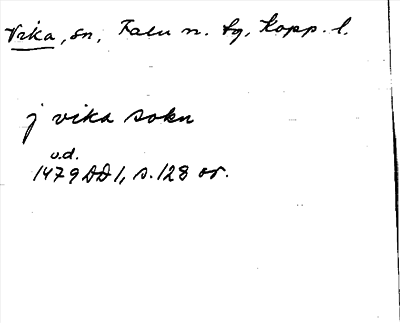 Vika, sn, Falu n. tg, Kopp. l.
j vika sokn
u.d.
1479 DD 1, s. 128 or.